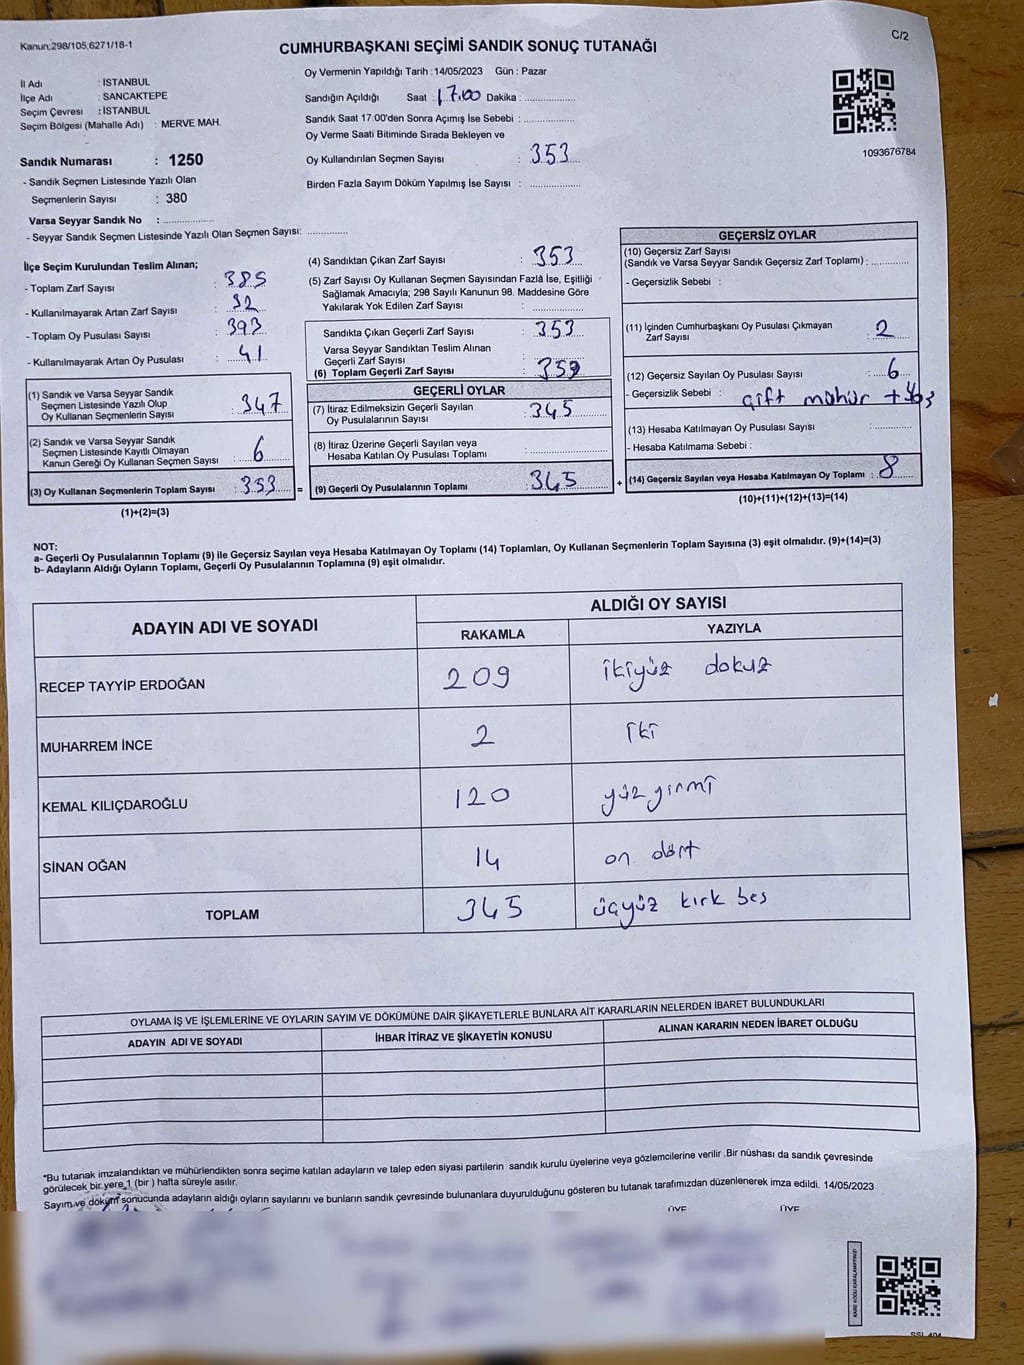 Kanun;298/105,6271/18-1
C/2
CUMHURBAŞKANI SEÇİMİ SANDIK SONUÇ TUTANAĞI
İl Adı : İSTANBUL
İlçe Adı : SANCAKTEPE
Seçim Çevresi : İSTANBUL
Seçim Bölgesi (Mahalle Adı) : MERVE MAH.
Oy Vermenin Yapıldığı Tarih :14/05/2023 Gün : Pazar
Sandığın Açıldığı Saat : 17.00 Dakika :
Sandık Saat 17:00'den Sonra Açımış İse Sebebi :
Oy Verme Saati Bitiminde Sırada Bekleyen ve
Oy Kullandırılan Seçmen Sayısı : 353
Birden Fazla Sayım Döküm Yapılmış İse Sayısı :
1093676784
Sandık Numarası : 1250
- Sandık Seçmen Listesinde Yazılı Olan
Seçmenlerin Sayısı : 380
Varsa Seyyar Sandık No :
- Seyyar Sandık Seçmen Listesinde Yazılı Olan Seçmen Sayısı:
İlçe Seçim Kurulundan Teslim Alınan;
- Toplam Zarf Sayısı : 385
- Kullanılmayarak Artan Zarf Sayısı : 32
- Toplam Oy Pusulası Sayısı : 393
- Kullanılmayarak Artan Oy Pusulası : 41
(1) Sandık ve Varsa Seyyar Sandık
Seçmen Listesinde Yazılı Olup
Oy Kullanan Seçmenlerin Sayısı : 347
(2) Sandık ve Varsa Seyyar Sandık
Seçmen Listesinde Kayıtlı Olmayan
Kanun Gereği Oy Kullanan Seçmen Sayısı : 6
(3) Oy Kullanan Seçmenlerin Toplam Sayısı : 353 =
(1)+(2)=(3)
(4) Sandıktan Çıkan Zarf Sayısı : 353
(5) Zarf Sayısı Oy Kullanan Seçmen Sayısından Fazla İse, Eşitliği
Sağlamak Amacıyla; 298 Sayılı Kanunun 98. Maddesine Göre
Yakılarak Yok Edilen Zarf Sayısı :
Sandıkta Çıkan Geçerli Zarf Sayısı : 353
Varsa Seyyar Sandıktan Teslim Alınan
Geçerli Zarf Sayısı :
(6) Toplam Geçerli Zarf Sayısı : 353
GEÇERLİ OYLAR
(7) İtiraz Edilmeksizin Geçerli Sayılan
Oy Pusulalarının Sayısı : 345
(8) İtiraz Üzerine Geçerli Sayılan veya
Hesaba Katılan Oy Pusulası Toplamı :
(9) Geçerli Oy Pusulalarının Toplamı : 345 +
GEÇERSİZ OYLAR
(10) Geçersiz Zarf Sayısı
(Sandık ve Varsa Seyyar Sandık Geçersiz Zarf Toplamı) :
- Geçersizlik Sebebi :
(11) İçinden Cumhurbaşkanı Oy Pusulası Çıkmayan
Zarf Sayısı : 2
(12) Geçersiz Sayılan Oy Pusulası Sayısı : 6
- Geçersizlik Sebebi : çift mühür +
(13) Hesaba Katılmayan Oy Pusulası Sayısı :
- Hesaba Katılmama Sebebi :
(14) Geçersiz Sayılan veya Hesaba Katılmayan Oy Toplamı : 8
(10)+(11)+(12)+(13)=(14)
NOT:
a- Geçerli Oy Pusulalarının Toplamı (9) ile Geçersiz Sayılan veya Hesaba Katılmayan Oy Toplamı (14) Toplamları, Oy Kullanan Seçmenlerin Toplam Sayısına (3) eşit olmalıdır. (9)+(14)=(3)
b- Adayların Aldığı Oyların Toplamı, Geçerli Oy Pusulalarının Toplamına (9) eşit olmalıdır.
ADAYIN ADI VE SOYADI
ALDIĞI OY SAYISI
RAKAMLA YAZIYLA
RECEP TAYYİP ERDOĞAN 209 ikiyüz dokuz
MUHARREM İNCE 2 iki
KEMAL KILIÇDAROĞLU 120 yüz yirmi
SİNAN OĞAN 14 on dört
TOPLAM 345 üçyüz kırk beş
OYLAMA İŞ VE İŞLEMLERİNE VE OYLARIN SAYIM VE DÖKÜMÜNE DAİR ŞİKAYETLERLE BUNLARA AİT KARARLARIN NELERDEN İBARET BULUNDUKLARI
ADAYIN ADI VE SOYADI İHBAR İTİRAZ VE ŞİKAYETİN KONUSU ALINAN KARARIN NEDEN İBARET OLDUĞU
*Bu tutanak imzalandıktan ve mühürlendikten sonra seçime katılan adayların ve talep eden siyasi partilerin sandık kurulu üyelerine veya gözlemcilerine verilir .Bir nüshası da sandık çevresinde
görülecek bir yere 1 (bir ) hafta süreyle asılır.
Sayım ve döküm sonucunda adayların aldığı oyların sayılarını ve bunların sandık çevresinde bulunanlara duyurulduğunu gösteren bu tutanak tarafımızdan düzenlenerek imza edildi. 14/05/2023
ÜYE ÜYE
KARE KODU KARALAMAYINIZ!